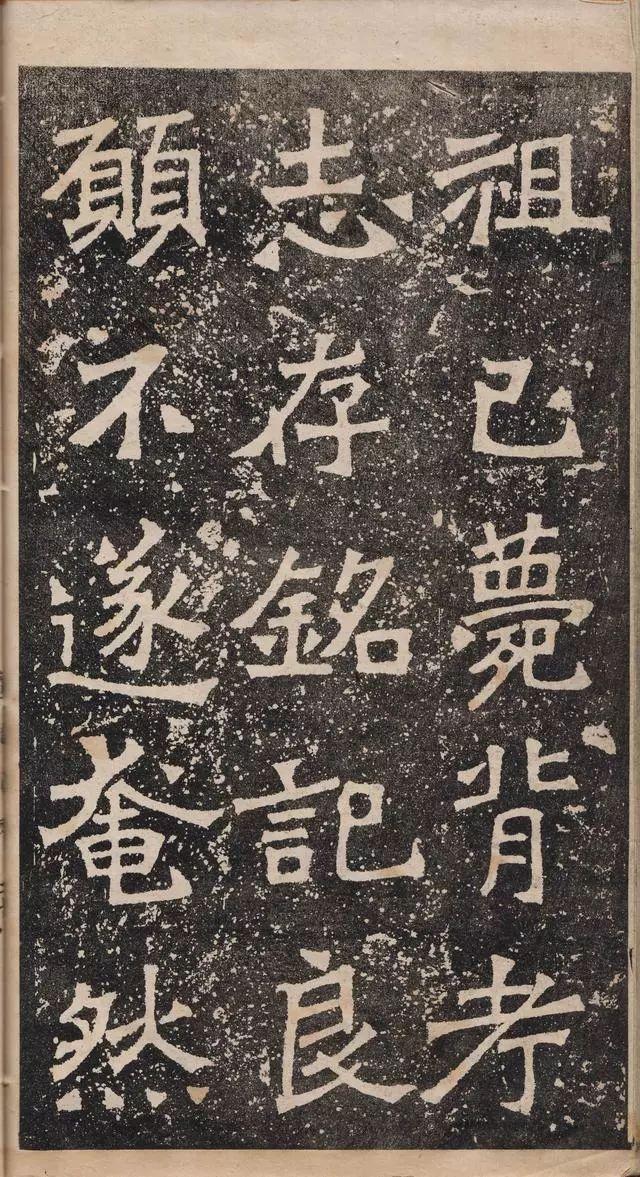 祖已薨背考
志存銘記良
願不遂奄然